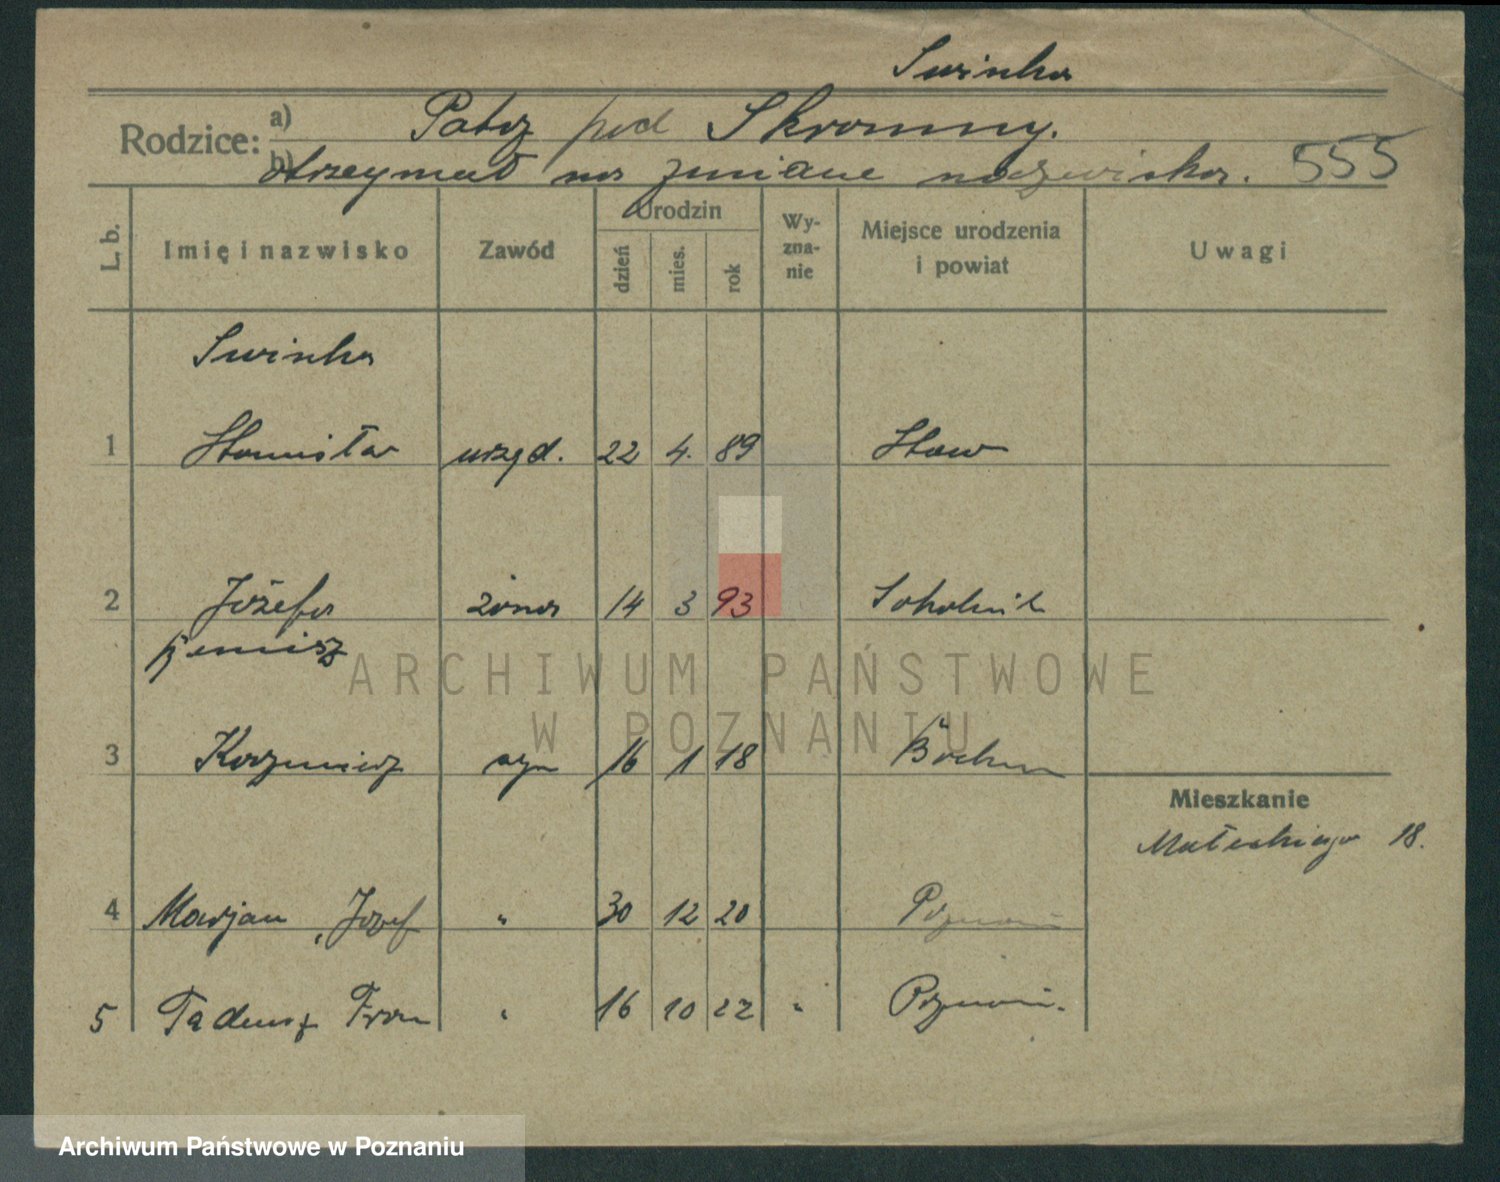 Swinka
Rodzice: a) Patrz pod Skromny.
b) otrzymał na zmianę nazwiska. 555
L. b. Imię i nazwisko Zawód Urodzin dzień mies. rok Wy-zna-nie Miejsce urodzenia i powiat Uwagi
Swinka
1 Stanisław urzęd. 22 4. 89 Staw
2 Józefa żona 14 3 93 Sokolnik
3 Kazimierz syn 16 1 18 Bochum
Mieszkanie
Małeckiego 18.
4 Marjan, Józef " 30 12 20 Poznań
5 Tadeusz Fran " 16 10 22 " Poznań.
ARCHIWUM PAŃSTWOWE
W POZNANIU
Archiwum Państwowe w Poznaniu